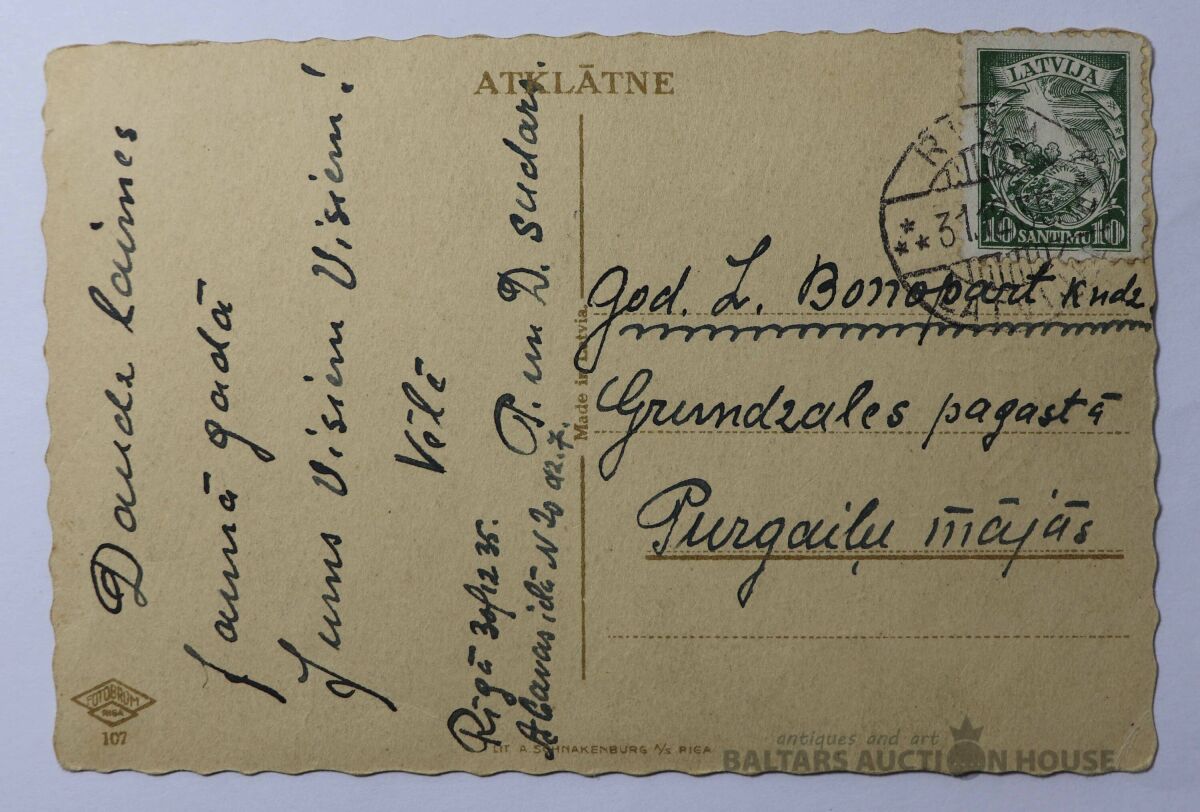 ATKLĀTNE
LATVIJA
10 SANTIMU 10
31.
Daudz laimes
Jaunā gadā
Jums Visiem Visiem!
Vēlē
P. un D. Sudari.
Rīgā 30/12 35.
N 20 dz. 7.
God. L. Bonopart kndz.
Grundzales pagastā
Purgaiļu mājās
Made in Latvia
FOTOBROM
RIGA
107
LIT. A. SCHNAKENBURG A/S RIGA
antiques and art
BALTARS AUCTION HOUSE